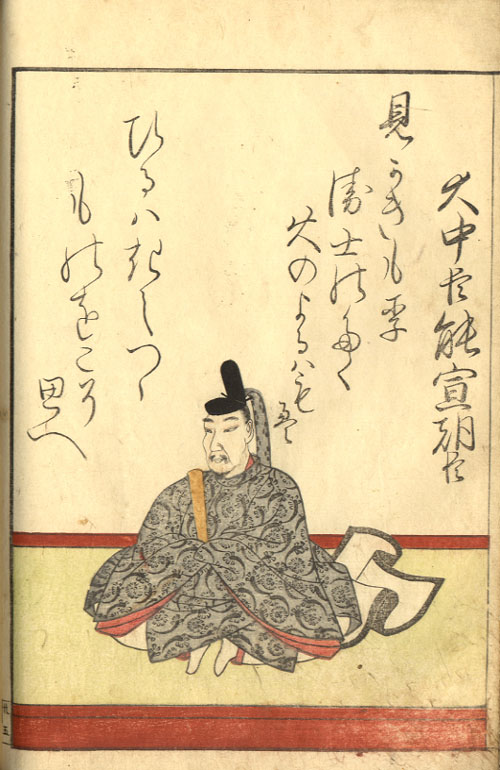 大中臣能宣朝臣
見かきも李
衛士のたく
火のよるハもえ
ひるハきえつゝ
ものをこそ
思へ